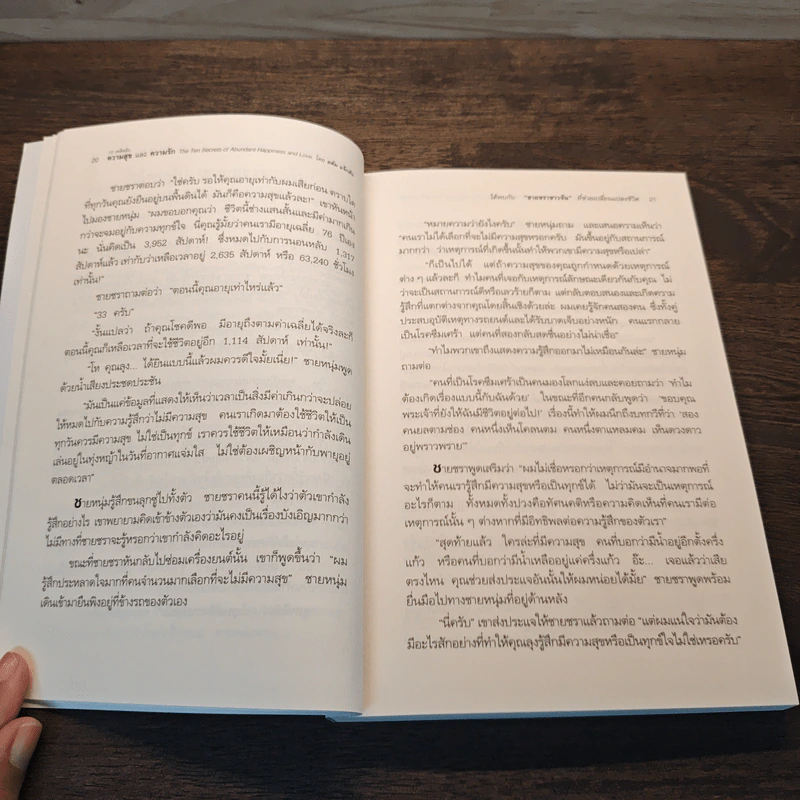 20 ความสุข และ ความรัก The Ten Secrets of Abundant Happiness and Love
ชายชราตอบว่า “ใช่ครับ รอให้คุณอายุเท่ากับผมเสียก่อน ตราบใด
ที่ทุกวันคุณยังยืนอยู่บนพื้นดินได้ มันก็คือความสุขแล้วละ!” เขาหันหน้า
ไปมองชายหนุ่ม “ผมขอบอกคุณว่า ชีวิตนี้ช่างแสนสั้นและมีค่ามากเกิน
กว่าจะจมอยู่กับความทุกข์ใจ นี่คุณรู้มั้ยว่าคนเรามีอายุเฉลี่ย 76 ปีเอง
นะ นั่นคิดเป็น 3,952 สัปดาห์! ซึ่งหมดไปกับการนอนหลับ 1,317
สัปดาห์แล้ว เท่ากับว่าเหลือเวลาอยู่ 2,635 สัปดาห์ หรือ 63,240 ชั่วโมง
เท่านั้น!”
ชายชราถามต่อว่า “ตอนนี้คุณอายุเท่าไหร่แล้ว”
“33 ครับ”
“งั้นแปลว่า ถ้าคุณโชคดีพอ มีอายุถึงตามค่าเฉลี่ยได้จริงละก็
ตอนนี้คุณก็เหลือเวลาที่จะใช้ชีวิตอยู่อีก 1,114 สัปดาห์ เท่านั้น!”
“โห คุณลุง... ได้ยินแบบนี้แล้วผมควรดีใจมั้ยเนี่ย!” ชายหนุ่มพูด
ด้วยน้ำเสียงประชดประชัน
“มันเป็นแค่ข้อมูลที่แสดงให้เห็นว่าเวลาเป็นสิ่งมีค่าเกินกว่าจะปล่อย
ให้หมดไปกับความรู้สึกว่าไม่มีความสุข คนเราเกิดมาต้องใช้ชีวิตให้เป็น
ทุกวันควรมีความสุข ไม่ใช่เป็นทุกข์ เราควรใช้ชีวิตให้เหมือนว่ากำลังเดิน
เล่นอยู่ในทุ่งหญ้าในวันที่อากาศแจ่มใส ไม่ใช่ต้องเผชิญหน้ากับพายุอยู่
ตลอดเวลา”
ชายหนุ่มรู้สึกขนลุกซู่ไปทั้งตัว ชายชราคนนี้รู้ได้ไงว่าตัวเขากำลัง
รู้สึกอย่างไร เขาพยายามคิดเข้าข้างตัวเองว่ามันคงเป็นเรื่องบังเอิญมากกว่า
ไม่มีทางที่ชายชราจะรู้หรอกว่าเขากำลังคิดอะไรอยู่
ขณะที่ชายชราหันกลับไปซ่อมเครื่องยนต์นั้น เขาก็พูดขึ้นว่า “ผม
รู้สึกประหลาดใจมากที่คนจำนวนมากเลือกที่จะไม่มีความสุข” ชายหนุ่ม
เดินเข้ามายืนพิงอยู่ที่ข้างรถของตัวเอง
ได้พบกับ “ชายชราชาวจีน” ที่ช่วยเปลี่ยนแปลงชีวิต 21
“หมายความว่ายังไงครับ” ชายหนุ่มถาม และเสนอความเห็นว่า
“คนเราไม่ได้เลือกที่จะไม่มีความสุขหรอกครับ มันขึ้นอยู่กับสถานการณ์
มากกว่า ว่าเหตุการณ์ที่เกิดขึ้นนั้นทำให้พวกเขามีความสุขหรือเปล่า”
“ก็เป็นไปได้ แต่ถ้าความสุขของคุณถูกกำหนดด้วยเหตุการณ์
ต่าง ๆ แล้วละก็ ทำไมคนที่เจอกับเหตุการณ์ลักษณะเดียวกันกับคุณ ไม่
ว่าจะเป็นสถานการณ์ดีหรือเลวร้ายก็ตาม แต่กลับตอบสนองและเกิดความ
รู้สึกที่แตกต่างจากคุณโดยสิ้นเชิงล่ะ ผมเคยรู้จักคนสองคน ซึ่งทั้งคู่
ประสบอุบัติเหตุทางรถยนต์และได้รับบาดเจ็บอย่างหนัก คนแรกกลาย
เป็นโรคซึมเศร้า แต่คนที่สองกลับสดชื่นอย่างไม่น่าเชื่อ”
“ทำไมพวกเขาถึงแสดงความรู้สึกออกมาไม่เหมือนกันล่ะ” ชายหนุ่ม
ถามต่อ
“คนที่เป็นโรคซึมเศร้าเป็นคนมองโลกแง่ลบและคอยถามว่า ‘ทำไม
ต้องเกิดเรื่องแบบนี้กับฉันด้วย’ ในขณะที่อีกคนกลับพูดว่า ‘ขอบคุณ
พระเจ้าที่ยังให้ฉันมีชีวิตอยู่ต่อไป!’ เรื่องนี้ทำให้ผมนึกถึงบทกวีที่ว่า ‘สอง
คนยลตามช่อง คนหนึ่งเห็นโคลนตม คนหนึ่งตาแหลมคม เห็นดวงดาว
อยู่พราวพราย’”
ชายชราพูดเสริมว่า “ผมไม่เชื่อหรอกว่าเหตุการณ์มีอำนาจมากพอที่
จะทำให้คนเรารู้สึกมีความสุขหรือเป็นทุกข์ได้ ไม่ว่ามันจะเป็นเหตุการณ์
อะไรก็ตาม ทั้งหมดทั้งปวงคือทัศนคติหรือความคิดเห็นที่คนเรามีต่อ
เหตุการณ์นั้น ๆ ต่างหากที่มีอิทธิพลต่อความรู้สึกของตัวเรา”
“สุดท้ายแล้ว ใครล่ะที่มีความสุข คนที่บอกว่ามีน้ำอยู่อีกตั้งครึ่ง
แก้ว หรือคนที่บอกว่ามีน้ำเหลืออยู่แค่ครึ่งแก้ว อ๊ะ... เจอแล้วว่าเสีย
ตรงไหน คุณช่วยส่งประแจอันนั้นให้ผมหน่อยได้มั้ย” ชายชราพูดพร้อม
ยื่นมือไปทางชายหนุ่มที่อยู่ด้านหลัง
“นี่ครับ” เขาส่งประแจให้ชายชราแล้วถามต่อ “แต่ผมแน่ใจว่ามันต้อง
มีอะไรสักอย่างที่ทำให้คุณลุงรู้สึกมีความสุขหรือเป็นทุกข์ใจไม่ใช่เหรอครับ”